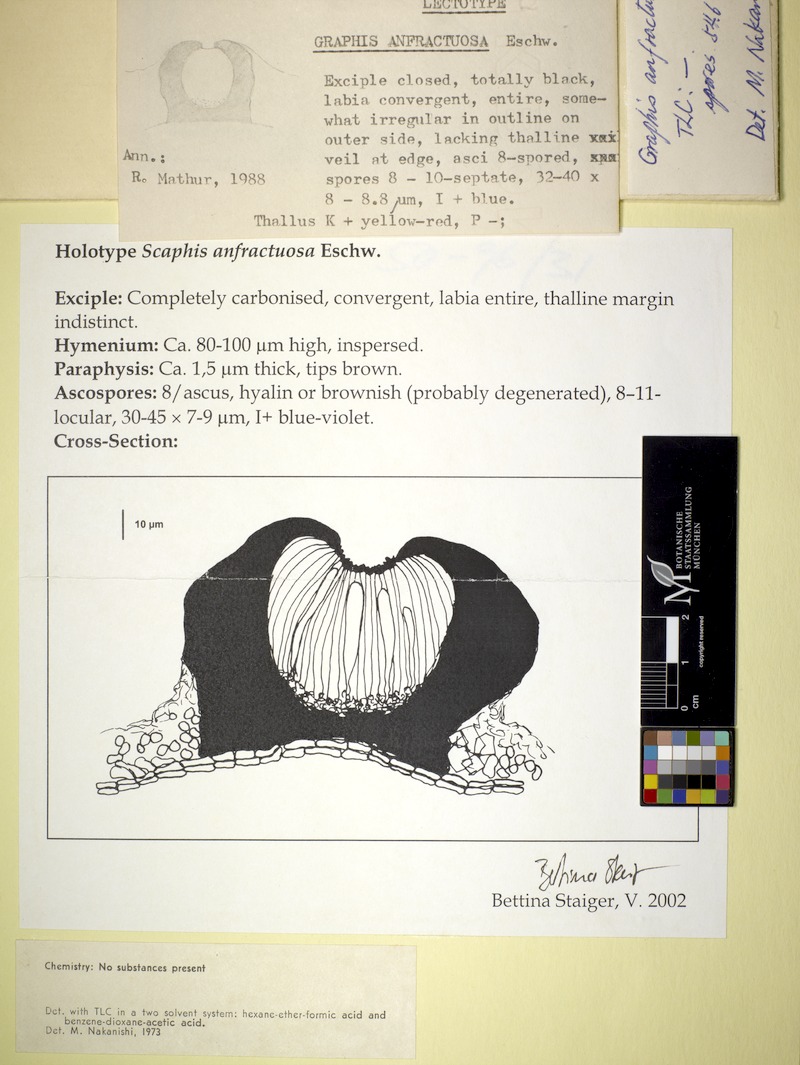 LECTOTYPE
GRAPHIS ANFRACTUOSA Eschw.
Exciple closed, totally black,
labia convergent, entire, some-
what irregular in outline on
outer side, lacking thalline
veil at edge, asci 8-spored,
spores 8 - 10-septate, 32-40 x
8 - 8.8 µm, I + blue.
Thallus K + yellow-red, P -;
Ann.;
R. Mathur, 1988
Graphis anfractu
TLC: —
spores 8-6
Det. M. Nakan
Holotype Scaphis anfractuosa Eschw.
Exciple: Completely carbonised, convergent, labia entire, thalline margin
indistinct.
Hymenium: Ca. 80-100 µm high, inspersed.
Paraphysis: Ca. 1,5 µm thick, tips brown.
Ascospores: 8/ascus, hyalin or brownish (probably degenerated), 8–11-
locular, 30-45 × 7-9 µm, I+ blue-violet.
Cross-Section:
10 µm
BOTANISCHE
STAATSSAMMLUNG
MÜNCHEN
copyright reserved
0 1 2
cm
Bettina Staiger
Bettina Staiger, V. 2002
Chemistry: No substances present
Det. with TLC in a two solvent system: hexane-ether-formic acid and
benzene-dioxane-acetic acid.
Det. M. Nakanishi, 1973